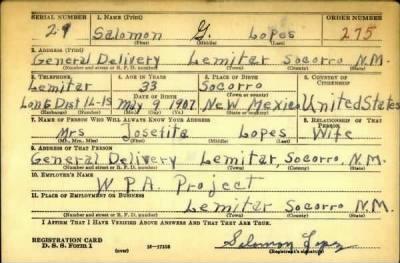 SERIAL NUMBER 1. NAME (Print) ORDER NUMBER
29 Salomon G. Lopes 275
(First) (Middle) (Last)
2. ADDRESS (Print)
General Delivery Lemitar Socorro N.M.
(Number and street or R. F. D. number) (Town) (County) (State)
3. TELEPHONE 4. AGE IN YEARS 5. PLACE OF BIRTH 6. COUNTRY OF CITIZENSHIP
Lemitar 33 Socorro
DATE OF BIRTH (Town or county)
Long Dist 12-15 May 9 1907 New Mexico United States
(Exchange) (Number) (Mo.) (Day) (Yr.) (State or country)
7. NAME OF PERSON WHO WILL ALWAYS KNOW YOUR ADDRESS 8. RELATIONSHIP OF THAT PERSON
Mrs Josefita Lopes Wife
(Mr., Mrs., Miss) (First) (Middle) (Last)
9. ADDRESS OF THAT PERSON
General Delivery Lemitar, Socorro, N.M.
(Number and street or R. F. D. number) (Town) (County) (State)
10. EMPLOYER'S NAME
W.P.A. Project
11. PLACE OF EMPLOYMENT OR BUSINESS
Lemitar Socorro N.M.
(Number and street or R. F. D. number) (Town) (County) (State)
I AFFIRM THAT I HAVE VERIFIED ABOVE ANSWERS AND THAT THEY ARE TRUE.
REGISTRATION CARD
D. S. S. Form 1 (over) 16-17105 Solomon Lopez
(Registrant's signature)